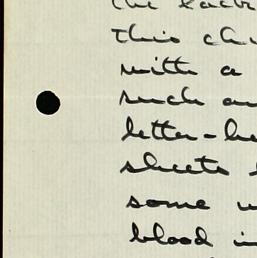 the
this
with a
such an
letter-he
sheets
some
blood i